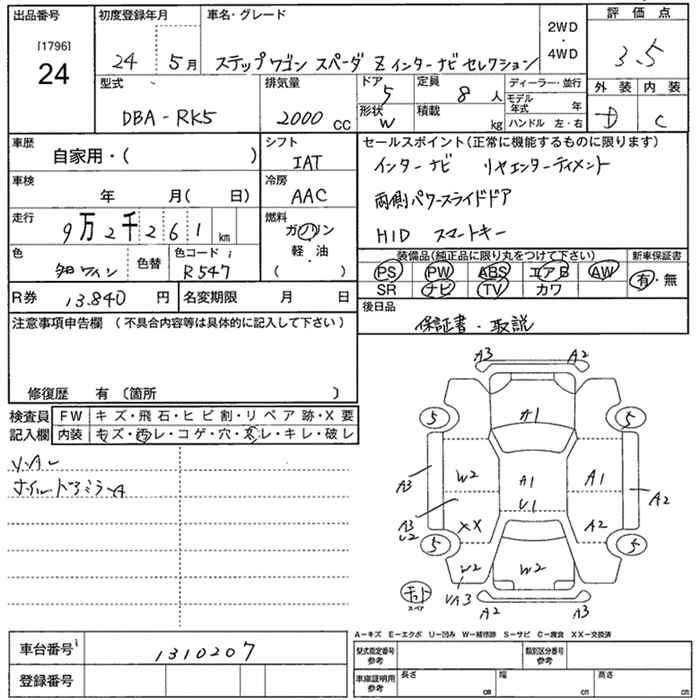 出品番号 初度登録年月 車名・グレード 評価点
[1796]
24
24 5月 ステップワゴン スパーダ Z インターナビ セレクション
2WD
・
4WD
3.5
型式 排気量 ドア 定員 ディーラー・並行 外装 内装
DBA-RK5 2000 CC 5 8人 モデル年式 年
形状 積載 ハンドル 左・右
W kg D C
車歴 シフト セールスポイント(正常に機能するものに限ります)
自家用・( ) IAT インターナビ リヤエンターティメント
車検 冷房
年 月( 日) AAC 両側パワースライドドア
走行 燃料
9万2千261 km ガソリン
軽・油
( )
HID スマートキー
色 色替 色コードi 装備品(純正品に限り丸をつけて下さい) 新車保証書
R547 PS PW ABS エアB AW 有・無
SR ナビ TV カワ
R券 13.840 円 名変期限 月 日 後日品
保証書・取説
注意事項申告欄 (不具合内容等は具体的に記入して下さい)
修復歴 有 〔箇所 〕
検査員 FW キズ・飛石・ヒビ割・リペア跡・X要
記入欄 内装 キズ・汚レ・コゲ・穴・スレ・キレ・破レ
A3 A2
5 A1 5
A3 W2 A1 A1 A2
V1
A3 XX A2
U2
5 5
W2 W2
VA3
スペア A2 A3
A-キズ E-エクボ U-凹み W-補修跡 S-サビ C-腐食 XX-交換済
車台番号i 1310207 型式指定番号 参考 類別区分番号 参考
登録番号 車庫証明用 参考 長さ cm 幅 cm 高さ cm